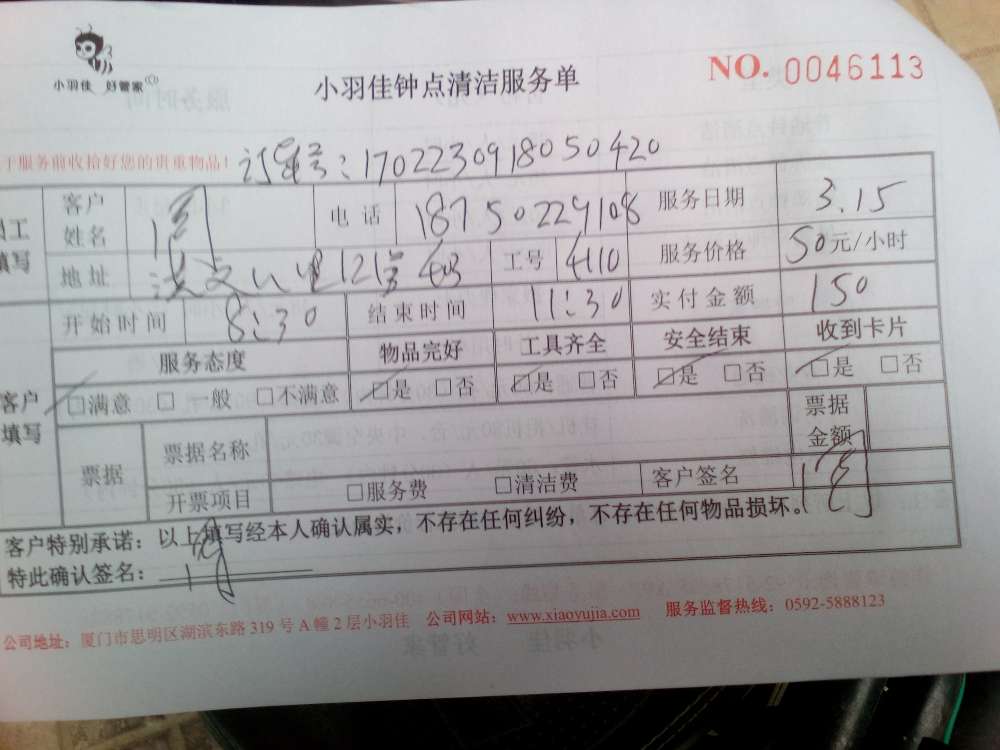 小羽佳 好管家
小羽佳钟点清洁服务单
NO. 0046113
于服务前收拾好您的贵重物品！
订单号：1702230918050420
员工填写
客户姓名 电话 18750229108 服务日期 3.15
地址 121号403 工号 4110 服务价格 50元/小时
开始时间 8:30 结束时间 11:30 实付金额 150
客户填写
服务态度 物品完好 工具齐全 安全结束 收到卡片
□满意 □一般 □不满意 □是 □否 □是 □否 □是 □否 □是 □否
票据 票据名称 票据金额
开票项目 □服务费 □清洁费 客户签名
客户特别承诺：以上填写经本人确认属实，不存在任何纠纷，不存在任何物品损坏。
特此确认签名：
公司地址：厦门市思明区湖滨东路 319 号 A 幢 2 层小羽佳 公司网站：www.xiaoyujia.com 服务监督热线：0592-5888123